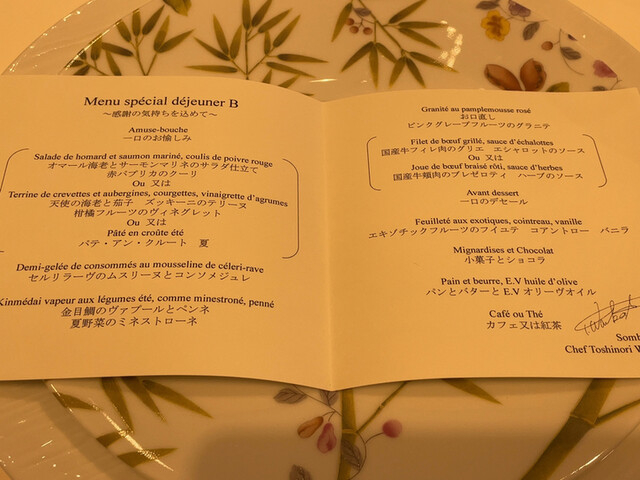 Menu spécial déjeuner B
～感謝の気持ちを込めて～
Amuse-bouche
一口のお愉しみ
Salade de homard et saumon mariné, coulis de poivre rouge
オマール海老とサーモンマリネのサラダ仕立て
赤パプリカのクーリ
Ou 又は
Terrine de crevettes et aubergines, courgettes, vinaigrette d'agrumes
天使の海老と茄子 ズッキーニのテリーヌ
柑橘フルーツのヴィネグレット
Ou 又は
Pâté en croûte été
パテ・アン・クルート 夏
Demi-gelée de consommés au mousseline de céleri-rave
セルリラーヴのムスリーヌとコンソメジュレ
Kinmédai vapeur aux légumes été, comme minestroné, penné
金目鯛のヴァプールとペンネ
夏野菜のミネストローネ
Granité au pamplemousse rosé
お口直し
ピンクグレープフルーツのグラニテ
Filet de bœuf grillé, sauce d'échalottes
国産牛フィレ肉のグリエ エシャロットのソース
Ou 又は
Joue de bœuf braisé rôti, sauce d'herbes
国産牛頬肉のブレゼロティ ハーブのソース
Avant dessert
一口のデセール
Feuilleté aux exotiques, cointreau, vanille
エキゾチックフルーツのフイユテ コアントロー バニラ
Mignardises et Chocolat
小菓子とショコラ
Pain et beurre, E.V huile d'olive
パンとバターと E.V オリーヴオイル
Café ou Thé
カフェ又は紅茶
Somb
Chef Toshinori W